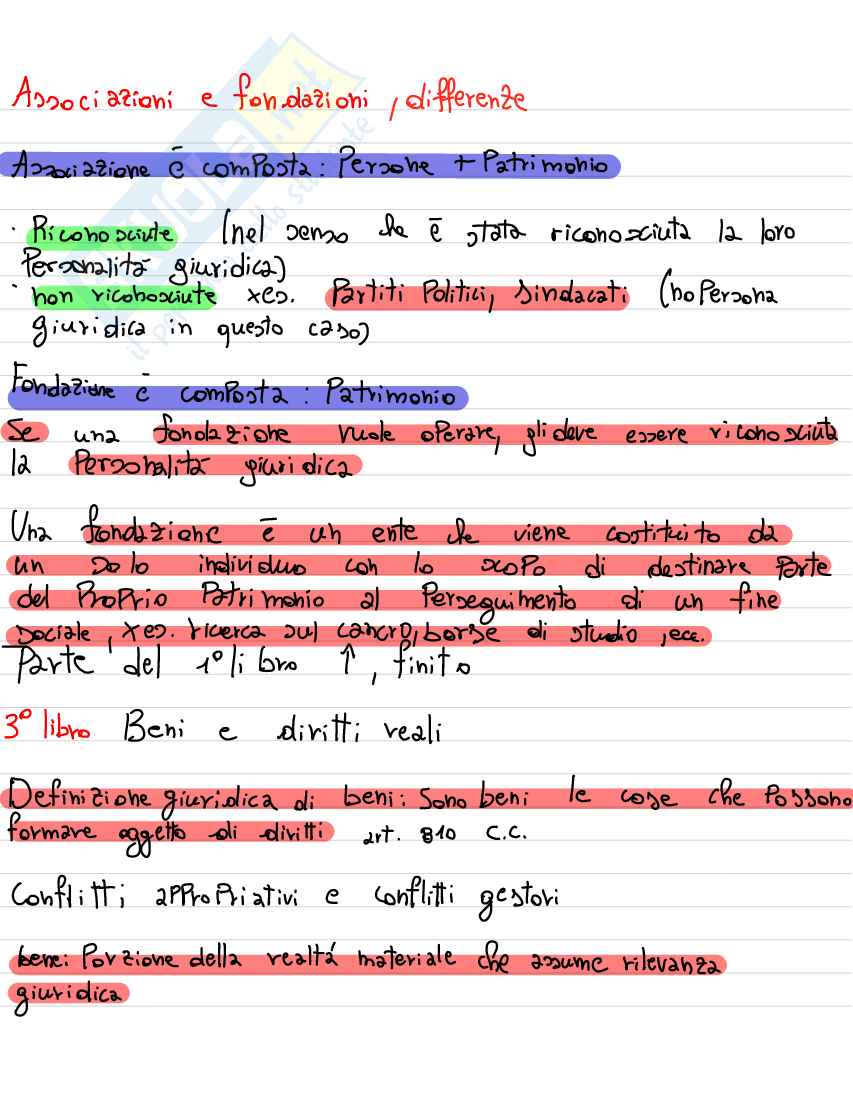 Associazioni e fondazioni, differenze
Associazione è composta: Persone + Patrimonio
· Riconosciute (nel senso che è stata riconosciuta la loro
Personalità giuridica)
· non riconosciute xes. Partiti Politici, Sindacati (no Persona
giuridica in questo caso)
Fondazione è composta: Patrimonio
Se una fondazione vuole operare, gli deve essere riconosciuta
la Personalità giuridica
Una fondazione è un ente che viene costituito da
un solo individuo con lo scopo di destinare Parte
del Proprio Patrimonio al Perseguimento di un fine
sociale, xes. ricerca sul cancro, borse di studio, ecc.
Parte del 1° libro ↑, finito
3° libro Beni e diritti reali
Definizione giuridica di beni: Sono beni le cose che Possono
formare oggetto di diritti art. 810 C.C.
Conflitti appropriativi e conflitti gestori
bene: Porzione della realtá materiale che assume rilevanza
giuridica